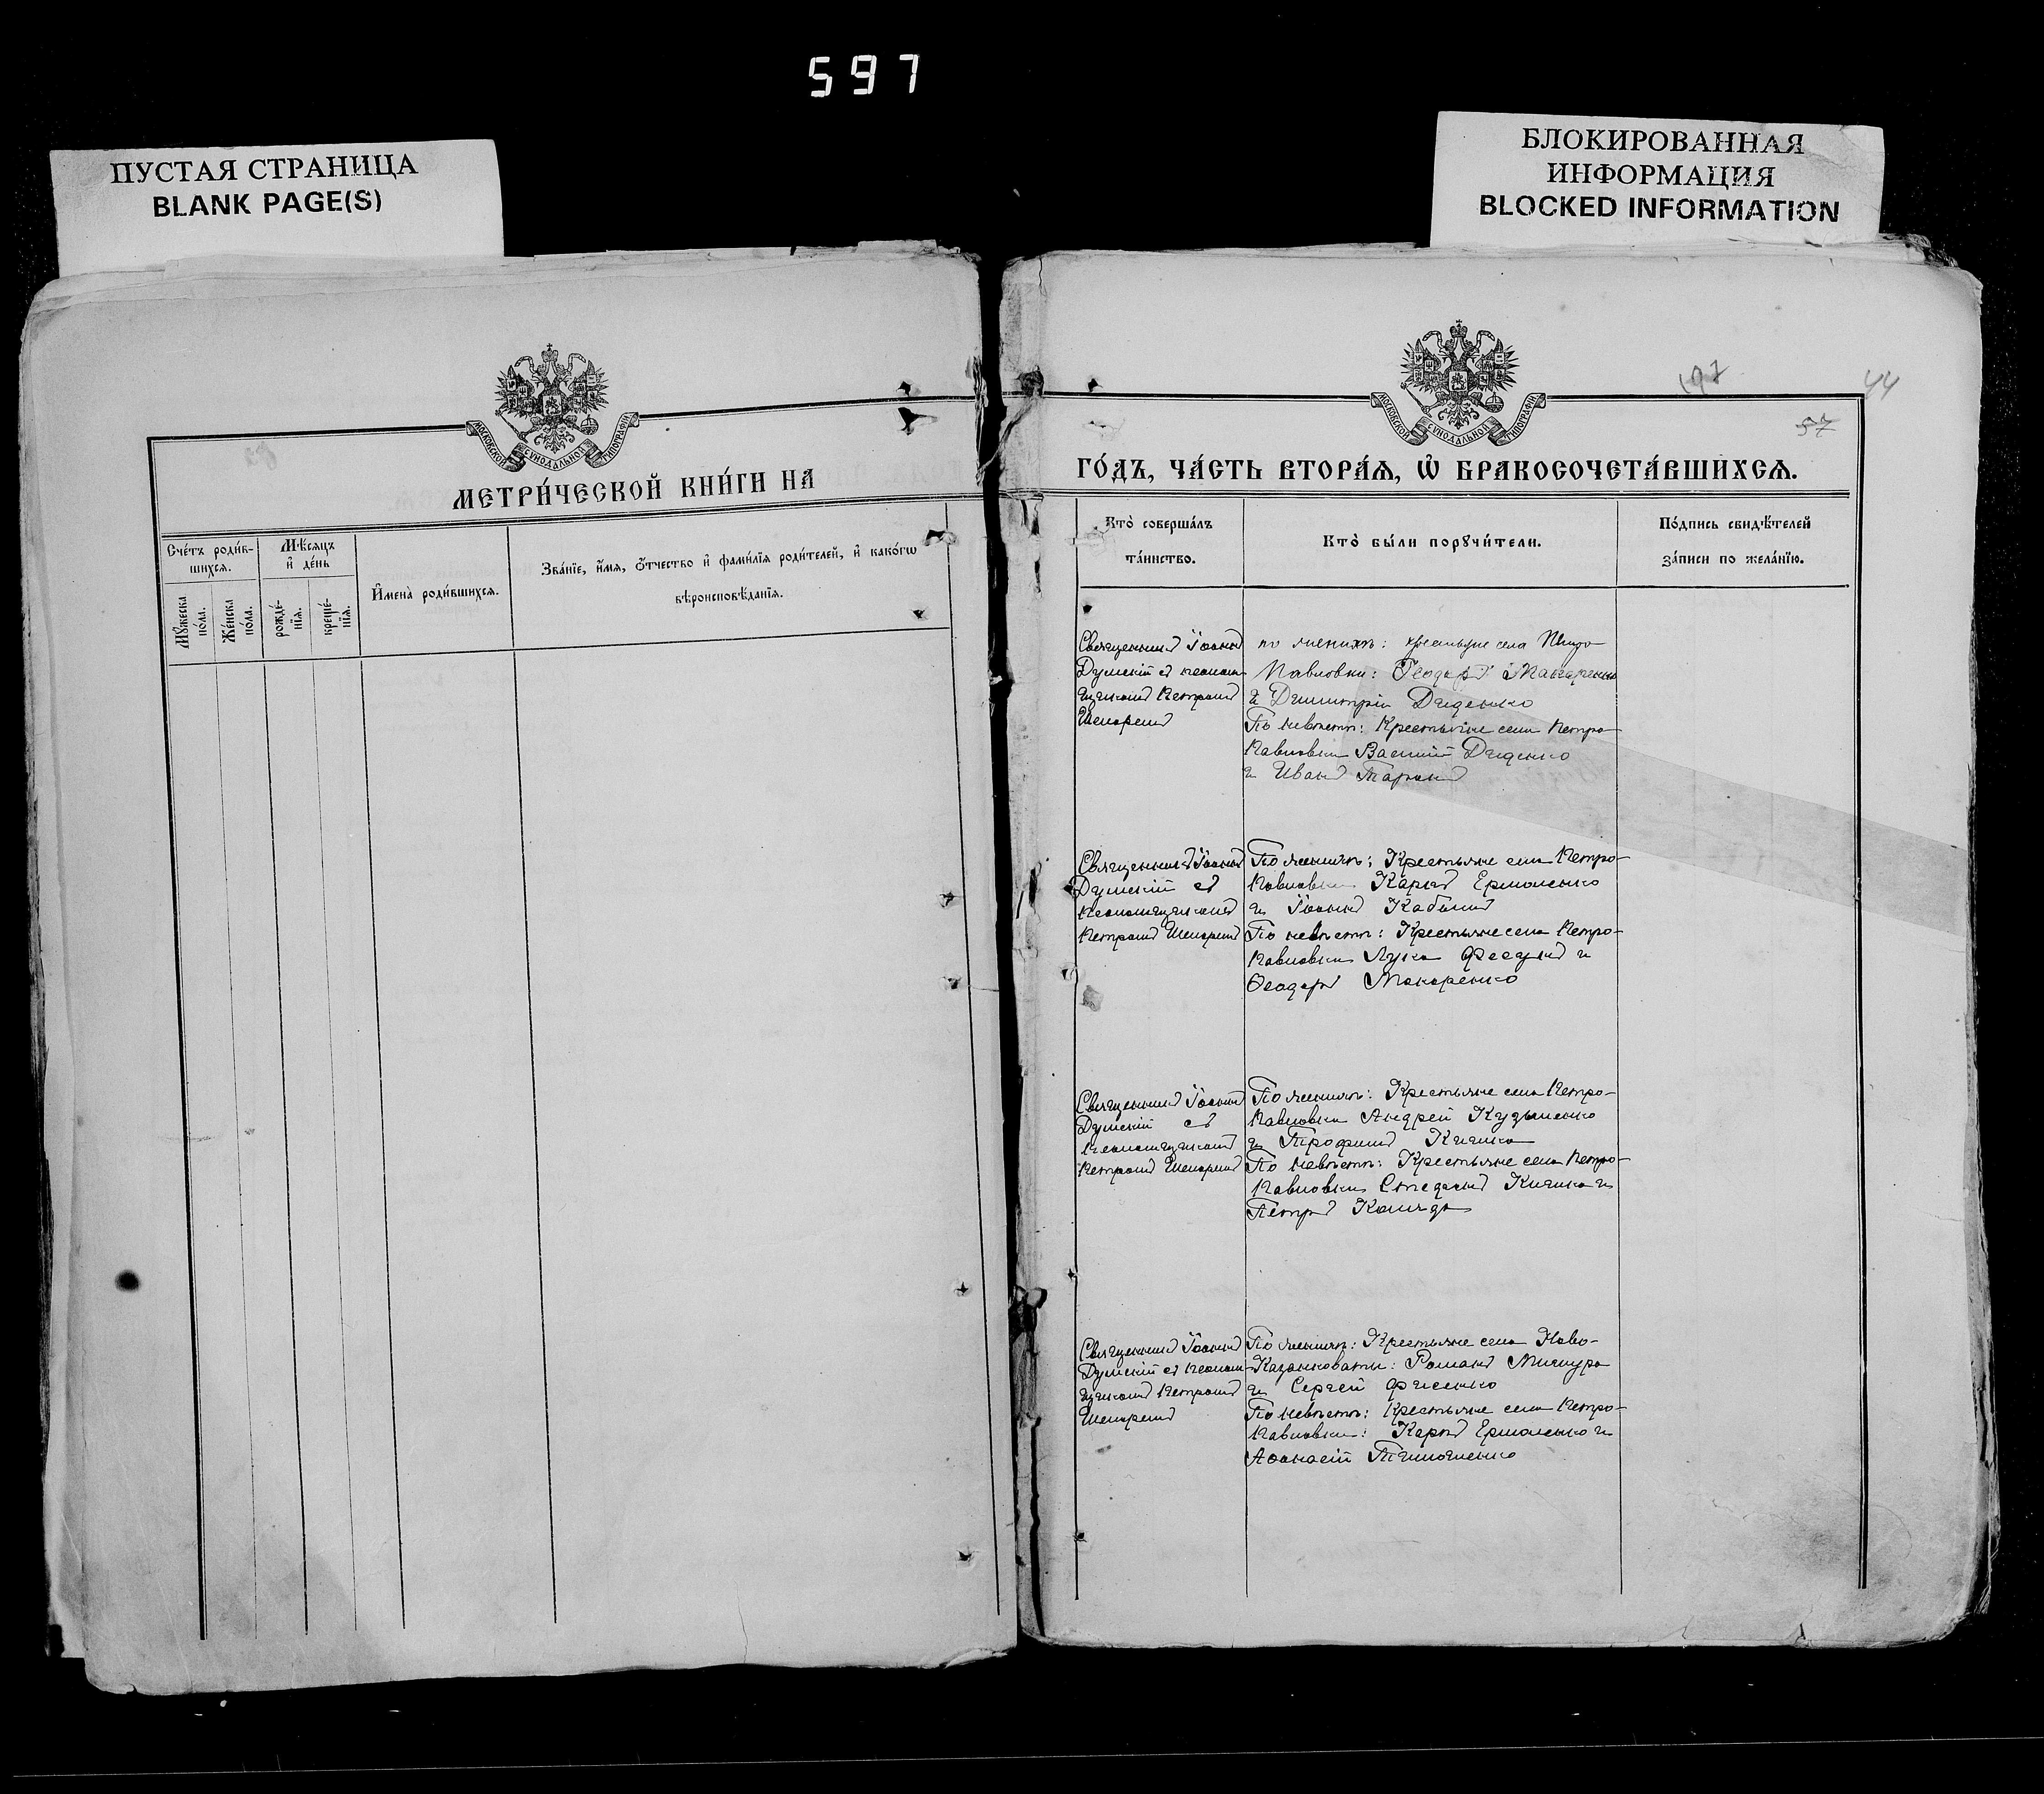 597
ПУСТАЯ СТРАНИЦА
BLANK PAGE(S)
БЛОКИРОВАННАЯ
ИНФОРМАЦИЯ
BLOCKED INFORMATION
МОСКОВСКОЙ СѴНОДАЛЬНОЙ ТИПОГРАФІИ
МЕТРИ́ЧЕСКОЙ КНИ́ГИ НА
Сче́тъ роди́вшихсѧ.
Мѣ́сяцъ и де́нь
Мꙋ́жеска по́ла.
Же́нска по́ла.
рожде́нїѧ.
креще́нїѧ.
И҆мена̀ роди́вшихсѧ.
Зва́нїе, и҆́мѧ, ѻ҆́тчество и҆ фами́лїѧ роди́телей, и҆ како́гѡ
вѣроисповѣ́данїѧ.
44
57
МОСКОВСКОЙ СѴНОДАЛЬНОЙ ТИПОГРАФІИ
ГО́ДЪ, ЧА́СТЬ ВТОРА́Ѧ, Ѡ҆ БРАКОСОЧЕТА́ВШИХСѦ.
Кто̀ соверша́лъ
та́инство.
Кто̀ бы́ли порꙋчи́тели.
По́дпись свидѣ́телей
за́писи по жела́нїю.
Священникъ Іоаннъ
Думскій съ псалом
щикомъ Петромъ
Шепоремъ
по женихѣ: крестьяне села Петро
Павловки: Ѳеодоръ Макаренко
и Димитрій Диденко
По невѣстѣ: Крестьяне села Петро-
Павловки Василій Диденко
и Иванъ Таранъ
Священникъ Іоаннъ
Думскій съ
Псаломщикомъ
Петромъ Шепоремъ
По женихѣ: Крестьяне села Петро-
Павловки Карпъ Ермоленко
и Іоаннъ
По невѣстѣ: Крестьяне села Петро-
Павловки Лука Фесунъ и
Ѳеодоръ Макаренко
Священникъ Іоаннъ
Думскій съ
Псаломщикомъ
Петромъ Шепоремъ
По женихѣ: Крестьяне села Петро-
Павловки Андрей Кузьменко
и Трофимъ Кияшко
По невѣстѣ: Крестьяне села Петро-
Павловки Стефанъ Кияшко и
Петръ
Священникъ Іоаннъ
Думскій съ псалом
щикомъ Петромъ
Шепоремъ
По женихѣ: Крестьяне села Ново-
Казанковати: Романъ Мисюра
и Сергѣй Фисенко
По невѣстѣ: Крестьяне села Петро-
Павловки: Карпъ Ермоленко и
Аѳанасій Тимошенко